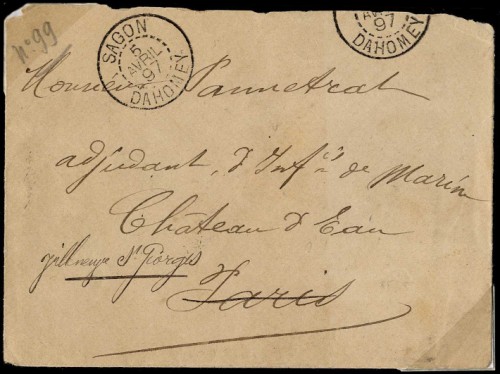 n° 99
SAGON
5
AVRIL
97
DAHOMEY
AVRIL
97
DAHOMEY
Monsieur Pannetrat
adjudant, d'Infie de Marine
Château d'Eau
Villeneuve St Georges
Paris